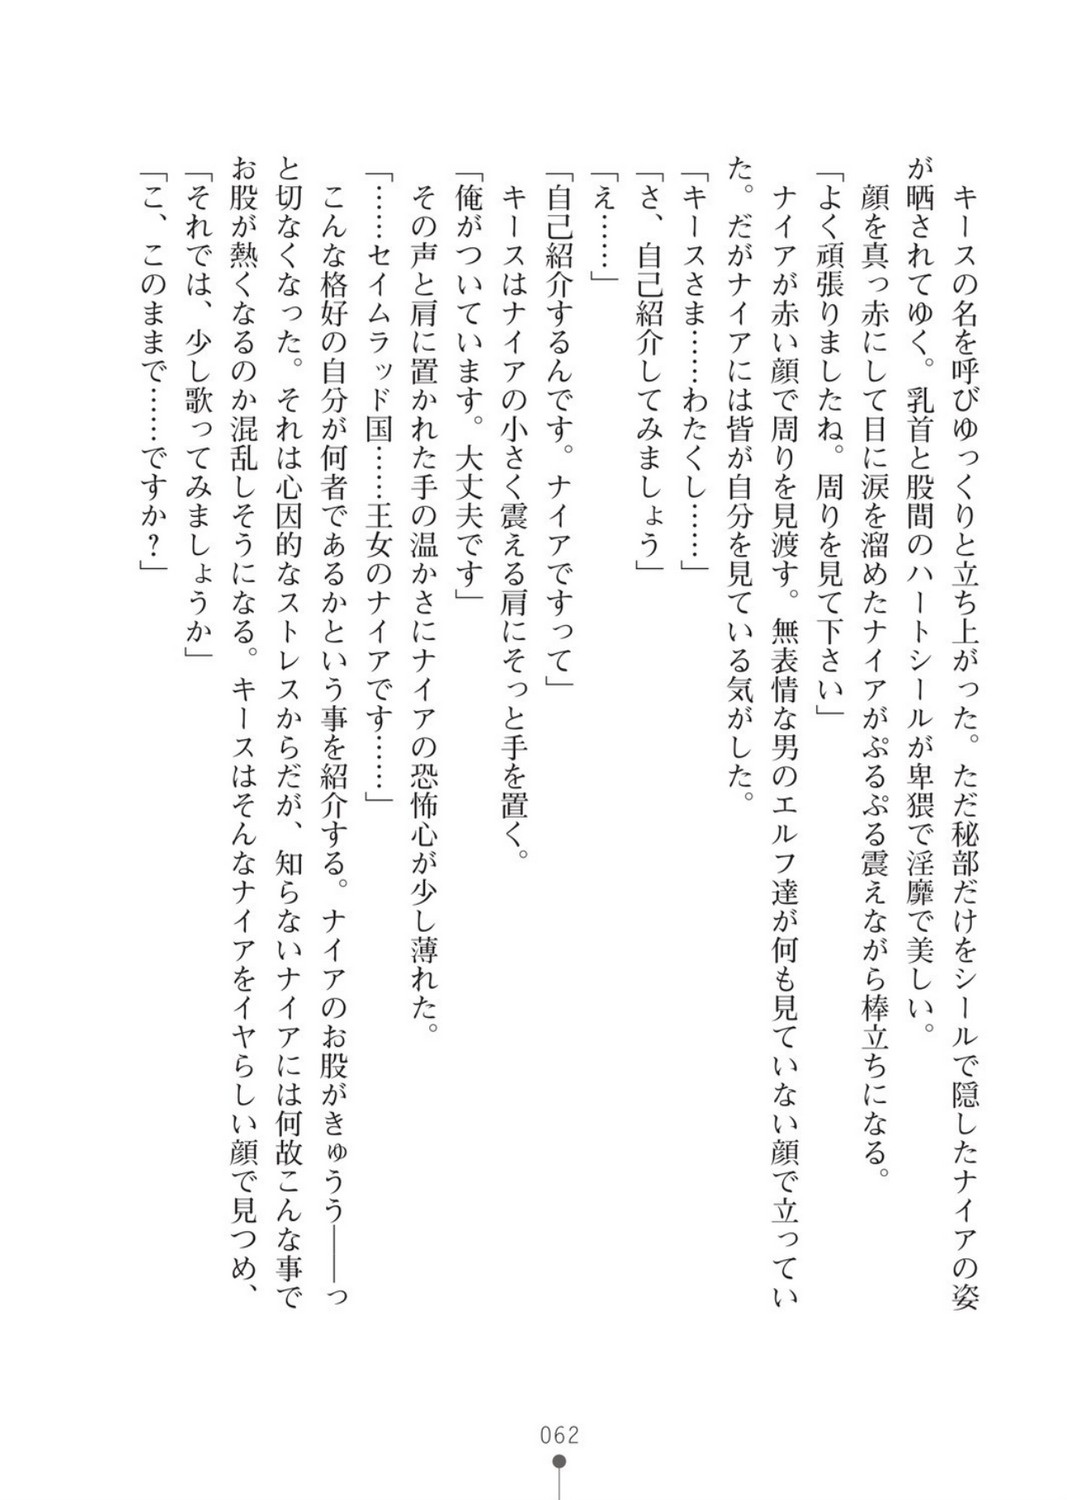 キースの名を呼びゆっくりと立ち上がった。ただ秘部だけをシールで隠したナイアの姿
が晒されてゆく。乳首と股間のハートシールが卑猥で淫靡で美しい。
顔を真っ赤にして目に涙を溜めたナイアがぷるぷる震えながら棒立ちになる。
「よく頑張りましたね。周りを見て下さい」
ナイアが赤い顔で周りを見渡す。無表情な男のエルフ達が何も見ていない顔で立ってい
た。だがナイアには皆が自分を見ている気がした。
「キースさま……わたくし……」
「さ、自己紹介してみましょう」
「え……」
「自己紹介するんです。ナイアですって」
キースはナイアの小さく震える肩にそっと手を置く。
「俺がついています。大丈夫です」
その声と肩に置かれた手の温かさにナイアの恐怖心が少し薄れた。
「……セイムラッド国……王女のナイアです……」
こんな格好の自分が何者であるかという事を紹介する。ナイアのお股がきゅうう――っ
と切なくなった。それは心因的なストレスからだが、知らないナイアには何故こんな事で
お股が熱くなるのか混乱しそうになる。キースはそんなナイアをイヤらしい顔で見つめ、
「それでは、少し歌ってみましょうか」
「こ、このままで……ですか？」
062